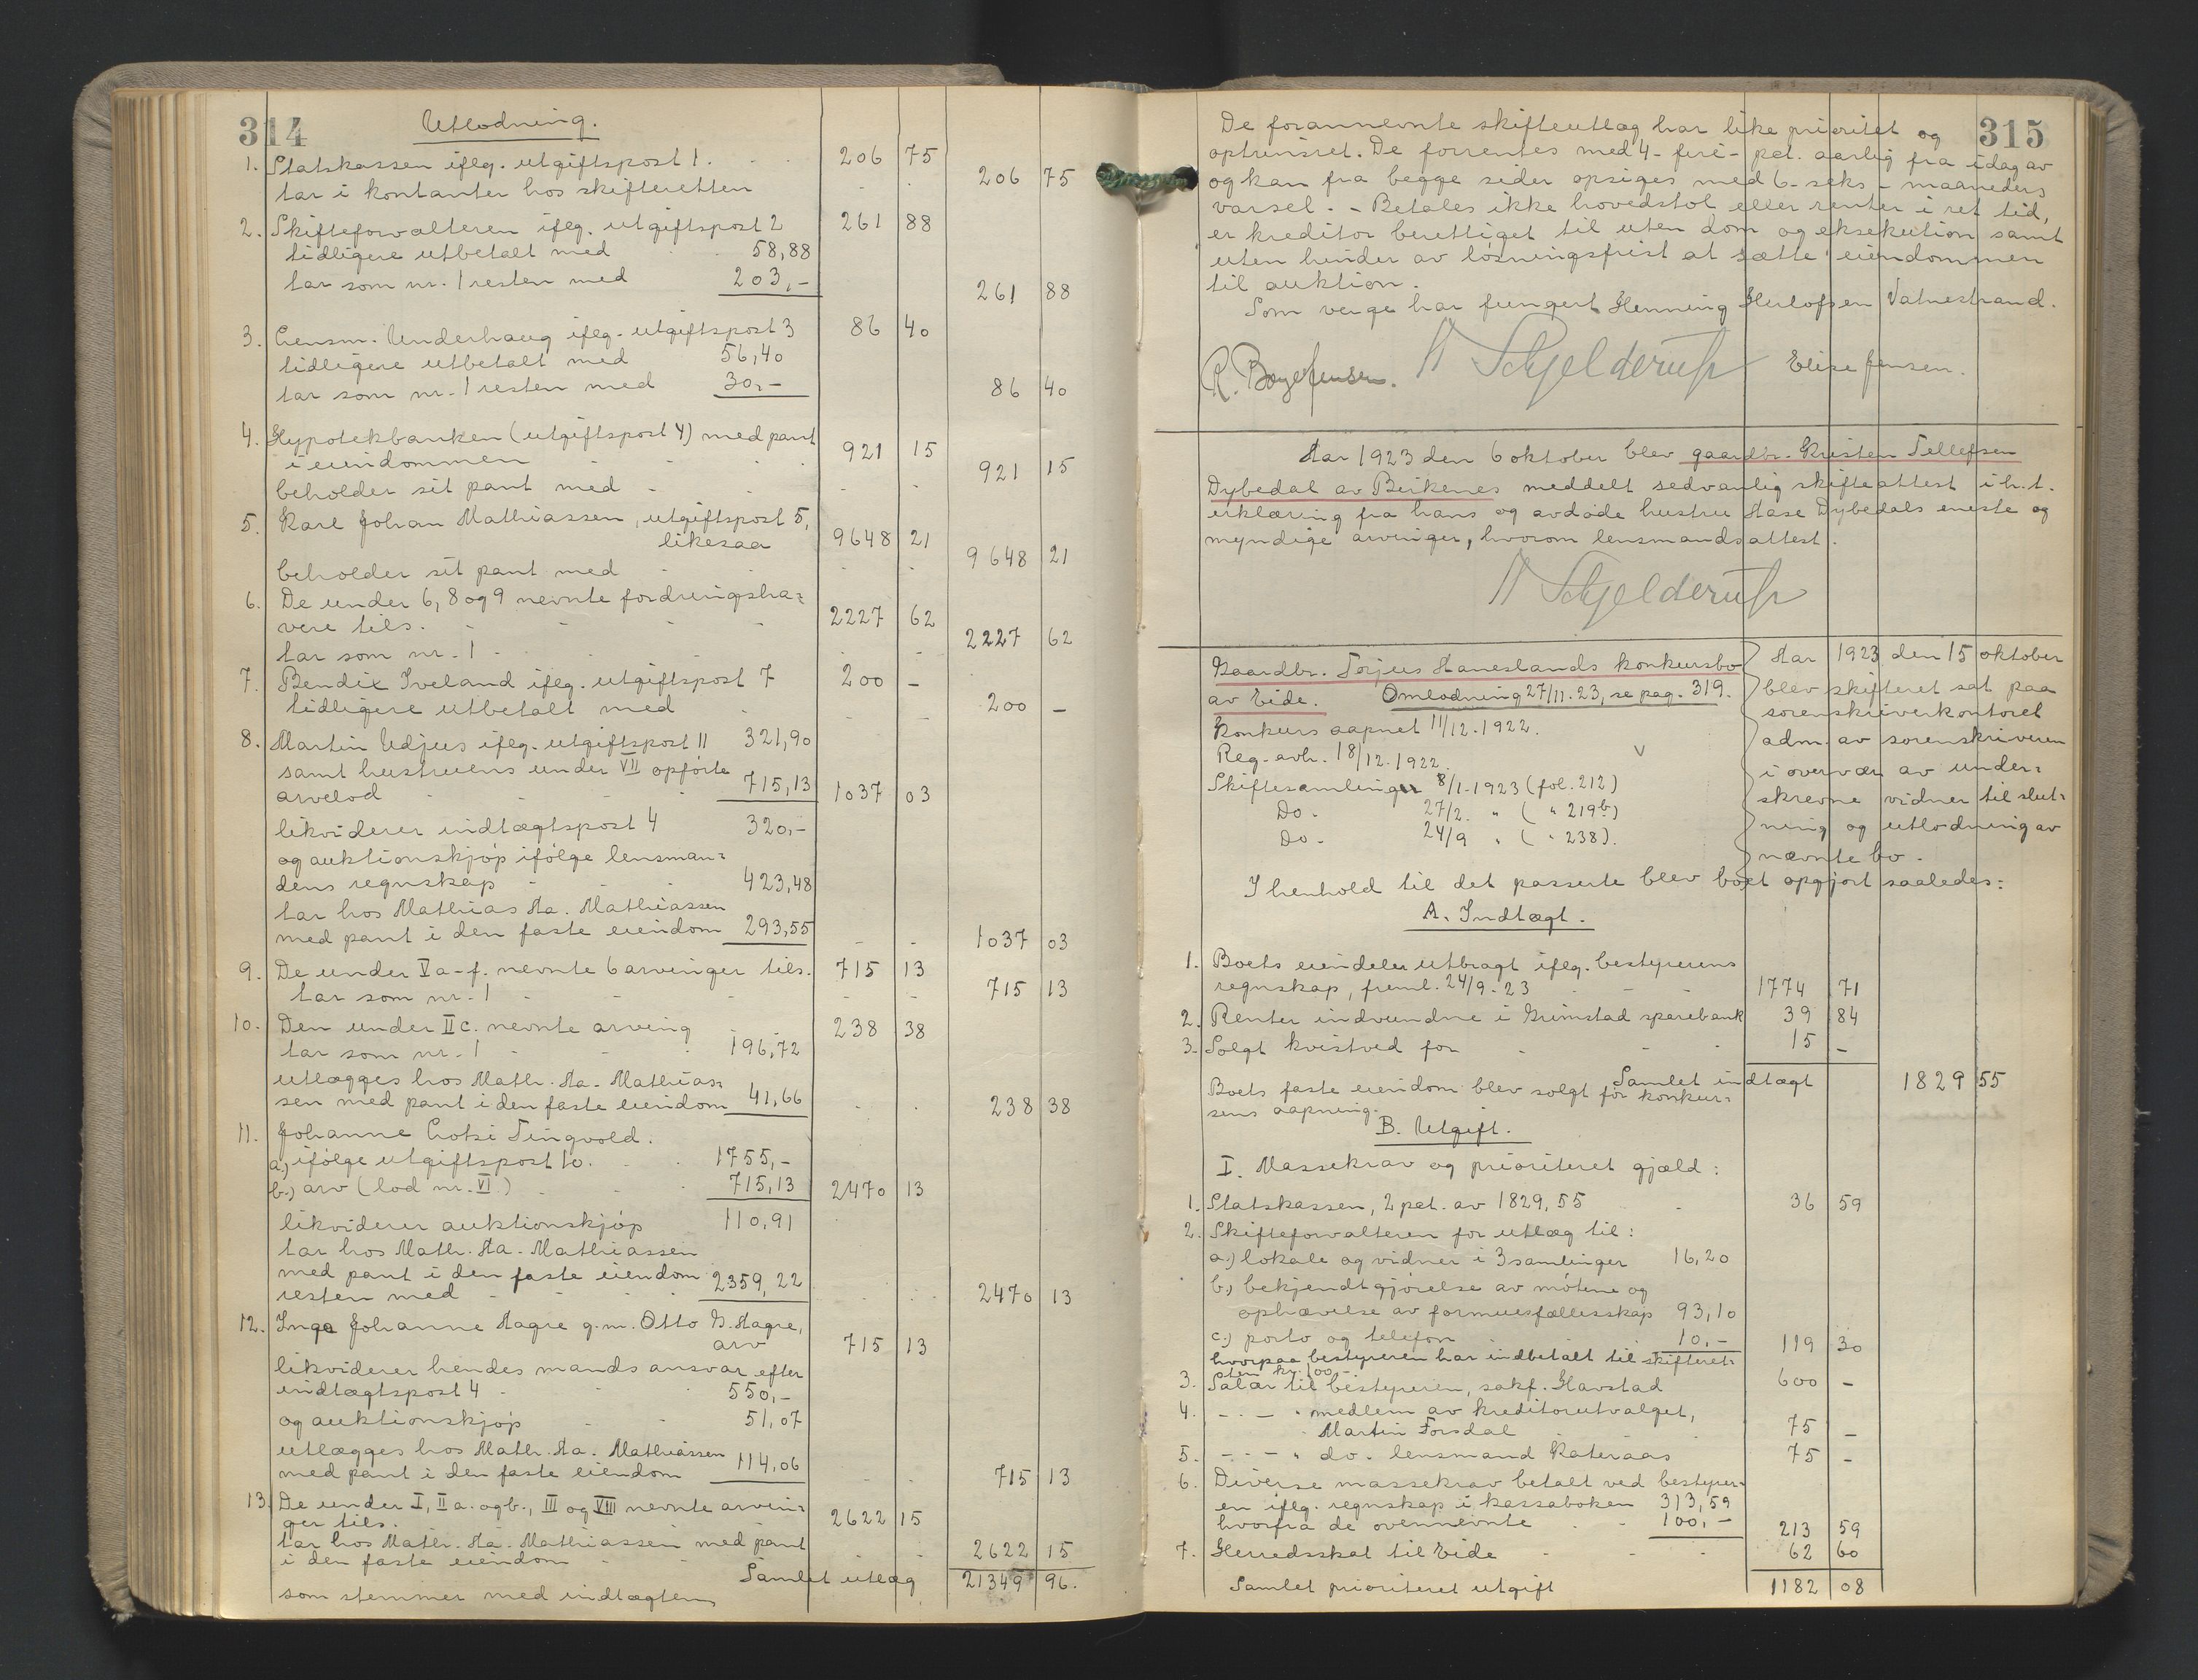 314
Utlodning.
1. Statskassen iflg. utgiftspost 1. 206 75
tar i kontanter hos skifteretten 206 75
2. Skifteforvalteren iflg. utgiftspost 2 261 88
tidligere utbetalt med 58,88
tar som nr. 1 resten med 203,-
261 88
3. Lensm. Underhaug iflg. utgiftspost 3 86 40
tidligere utbetalt med 56,40
tar som nr. 1 resten med 30,-
86 40
4. Hypotekbanken (utgiftspost 4) med pant
i eiendommen 921 15
beholder sit pant med 921 15
5. Karl Johan Mathiassen, utgiftspost 5,
likesaa 9648 21
beholder sit pant med 9648 21
6. De under 6, 8 og 9 nevnte fordringsha-
vere tils. 2227 62
tar som nr. 1 2227 62
7. Bendix Iveland iflg. utgiftspost 7 200 -
tidligere utbetalt med 200 -
8. Martin Udjus iflg. utgiftspost 11 321,90
samt hustruens under VII opførte
arvelod 715,13 1037 03
likviderer indtægtspost 4 320,-
og auktionskjøp ifølge lensman-
dens regnskap 423,48
tar hos Mathias Aa. Mathiassen
med pant i den faste eiendom 293,55 1037 03
9. De under Va-f. nevnte 6 arvinger tils. 715 13
tar som nr. 1 715 13
10. Den under IIc. nevnte arving 238 38
tar som nr. 1 196,72
utlægges hos Math. Aa. Mathias-
sen med pant i den faste eiendom 41,66 238 38
11. Johanne Lotsi Tingvold.
a.) ifølge utgiftspost 10. 1755,-
b.) arv (lod nr. VI) 715,13 2470 13
likviderer auktionskjøp 110,91
tar hos Math. Aa. Mathiassen
med pant i den faste eiendom
resten med 2359,22 2470 13
12. Inga Johanne Aagre g.m. Otto G. Aagre,
arv 715 13
likviderer hendes mands ansvar efter
indtægtspost 4 550,-
og auktionskjøp 51,07
utlægges hos Math. Aa. Mathiassen
med pant i den faste eiendom 114,06 715 13
13. De under I, II a. og b., III og VIII nevnte arvin-
ger tils. 2622 15
tar hos Math. Aa. Mathiassen med pant
i den faste eiendom 2622 15
Samlet utlæg 21349 96.
som stemmer med indtægten
315
De forannevnte skifteutlæg har like prioritet og
optrinsret. De forrentes med 4 - fire - pct. aarlig fra idag av
og kan fra begge sider opsiges med 6 - seks - maaneders
varsel. - Betales ikke hovedstol eller renter i ret tid,
er kreditor berettiget til uten dom og eksekution samt
uten hinder av løsningsfrist at sætte eiendommen
til auktion.
Som verge har fungert Henning Herlofsen Vatnestrand.
R. Boye Jensen. Schjelderup Elise Jensen.
Aar 1923 den 6 oktober blev gaardbr. Kristen Tellefsen
Dybedal av Beikenes meddelt sedvanlig skifteattest i h.t.
erklæring fra hans og avdøde hustru Aase Dybedals eneste og
myndige arvinger, hvorom lensmandsattest.
Schjelderup
Gaardbr. Torjus Haneslands konkursbo
av Eide. Omlodning 27/11.23, se pag. 319.
Konkurs aapnet 11/12.1922.
Reg. avh. 18/12.1922.
Skiftesamlinger 8/1-1923 (fol. 212)
Do. 27/2. " ( " 219b)
Do. 24/9 " ( " 238).
Aar 1923 den 15 oktober
blev skifteret sat paa
sorenskriverkontoret
adm. av sorenskriveren
i overvær av under-
skrevne vidner til slut-
ning og utlodning av
nævnte bo.
I henhold til det passerte blev boet opgjort saaledes:
A. Indtægt.
1. Boets eiendeler utbragt iflg. bestyrerens
regnskap, freml. 24/9-23 1774 71
2. Renter indvundne i Grimstad sparebank 39 84
3. Solgt kvistved for 15 -
Samlet indtægt 1829 55
Boets faste eiendom blev solgt før konkur-
sens aapning.
B. Utgift.
I. Massekrav og prioriteret gjæld:
1. Statskassen, 2 pct. av 1829,55 36 59
2. Skifteforvalteren for utlæg til:
a.) lokale og vidner i 3 samlinger 16,20
b.) bekjendtgjørelse av møtene og
ophævelse av formuesfællesskap 93,10
c.) porto og telefon 10,- 119 30
hvorpaa bestyreren har indbetalt til skifteret-
ten kr. 100.-
3. Salær til bestyreren, sakf. Havstad 600 -
4. - " - " medlem av kreditorutvalget,
Martin Forsdal 75 -
5. - " - " do. lensmand Kateraas 75 -
6. Diverse massekrav betalt ved bestyrer-
en iflg. regnskap i kassaboken 313,59
hvorfra de ovennevnte 100,- 213 59
7. Herredsskat til Eide 62 60
Samlet prioriteret utgift 1182 08